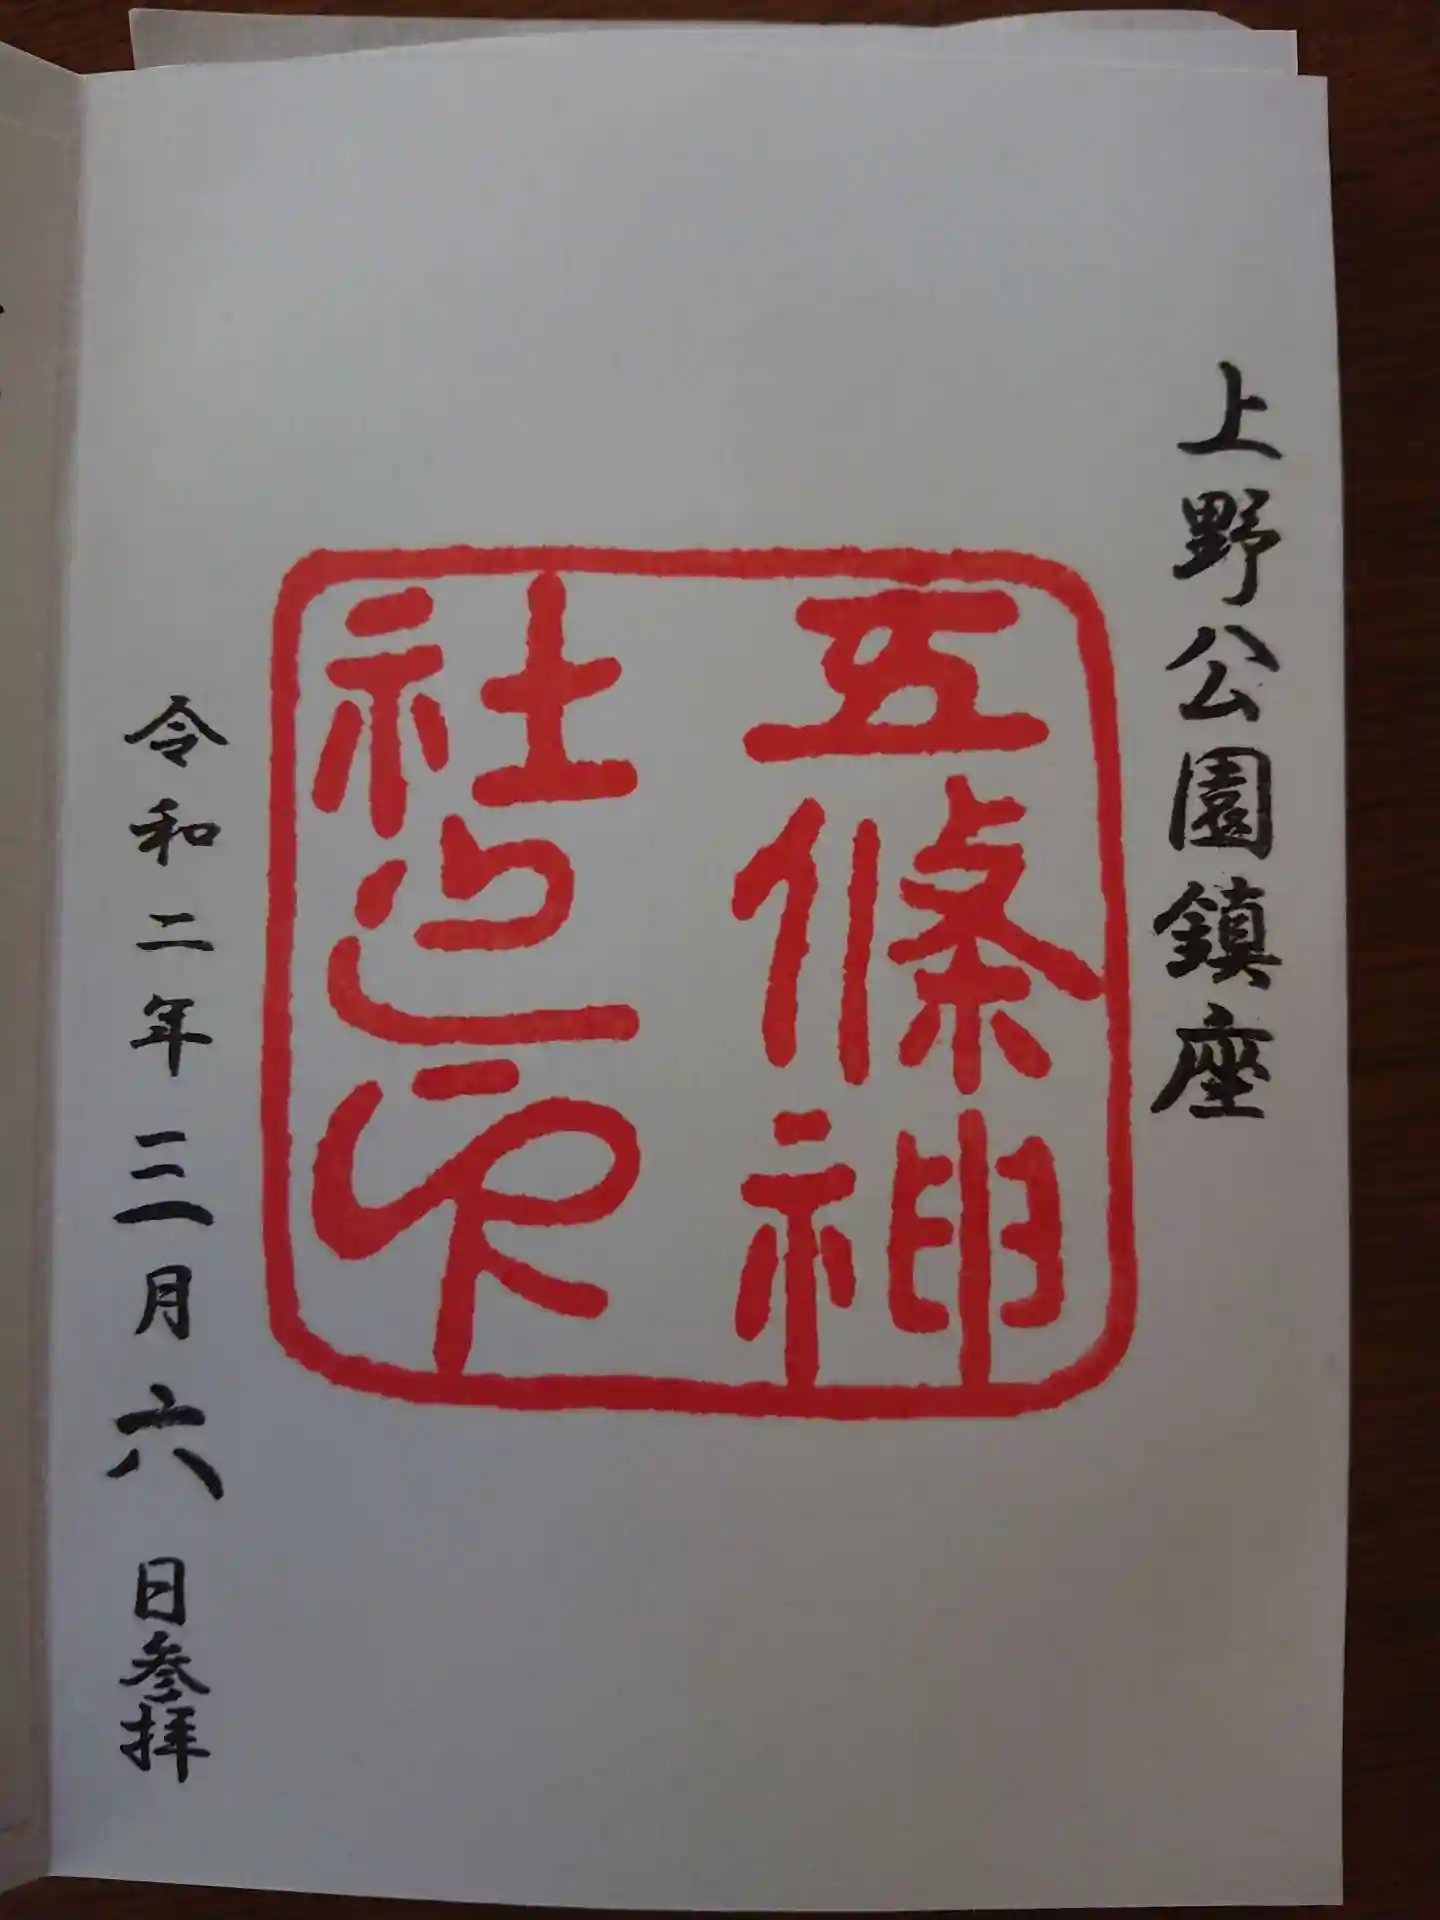 上野公園鎮座
五條神
社之印
令和二年三月六日参拝